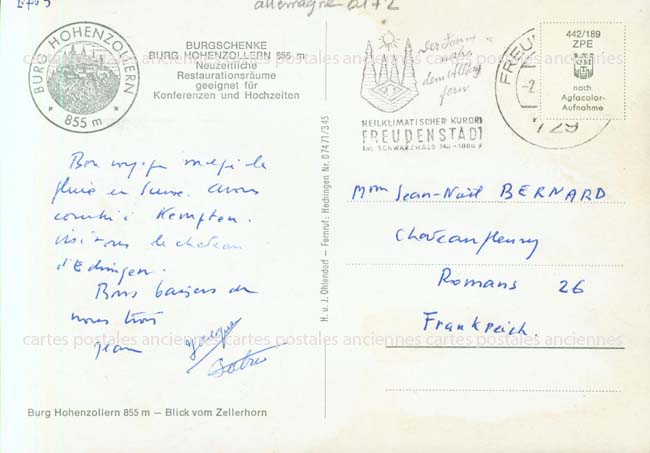 allemagne
BURG HOHENZOLLERN
855 m
BURGSCHENKE
BURG HOHENZOLLERN 855 m
Neuzeitliche
Restaurationsräume
geeignet für
Konferenzen und Hochzeiten
Der Sonne
nah
dem Alltag
fern
HEILKLIMATISCHER KURORT
FREUDENSTADT
IM SCHWARZWALD 740-1000 m
442/189
ZPE
nach
Agfacolor-
Aufnahme
cartes postales anciennes cartes postales anciennes cartes postales anciennes
Bon voyage malgré la
pluie en Suisse. avons
couché à Kempten.
visitons le chateau
Bons baisers de
nous trois
jean
H. u. J. Ohlendorf – Fernruf: Hechingen Nr. 07471/345
Mme Jean-Noël BERNARD
Chateaufleury
Romans 26
Frankreich.
cartes postales anciennes cartes postales anciennes cartes postales anciennes
Burg Hohenzollern 855 m – Blick vom Zellerhorn